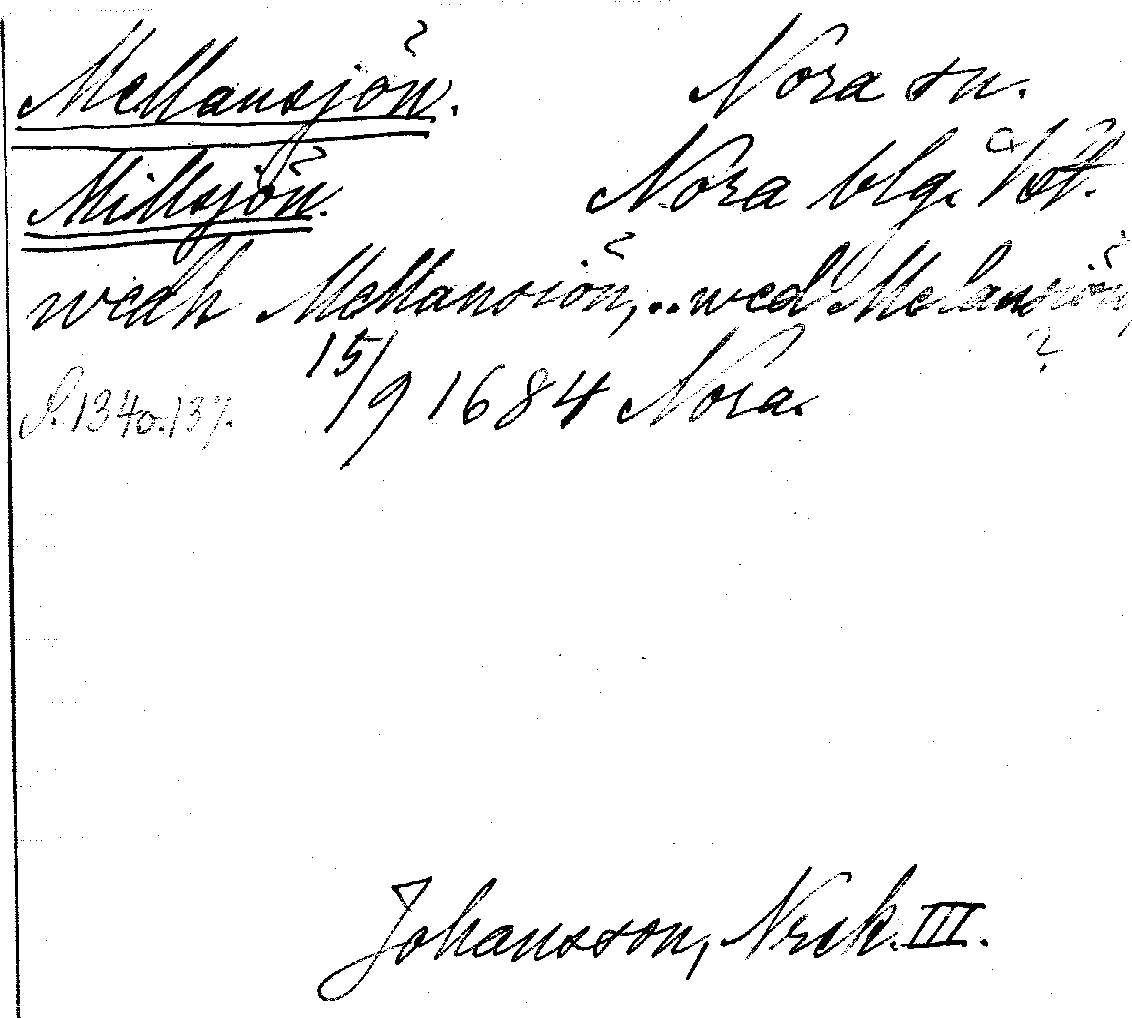 Mellansjön. Nora sn.
Millsjön. Nora blg. Vst.
wedh Mellansiön, .. wed Melansiön,
S. 134 o. 137. 15/9 1684 Nora.
Johansson, Nrck. III.